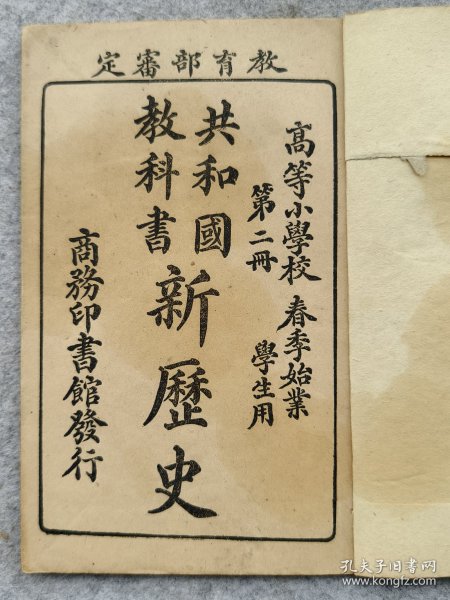 教育部審定
高等小學校 春季始業
第二冊 學生用
共和國
教科書
新歷史
商務印書館發行
孔夫子旧书网
www.kongfz.com